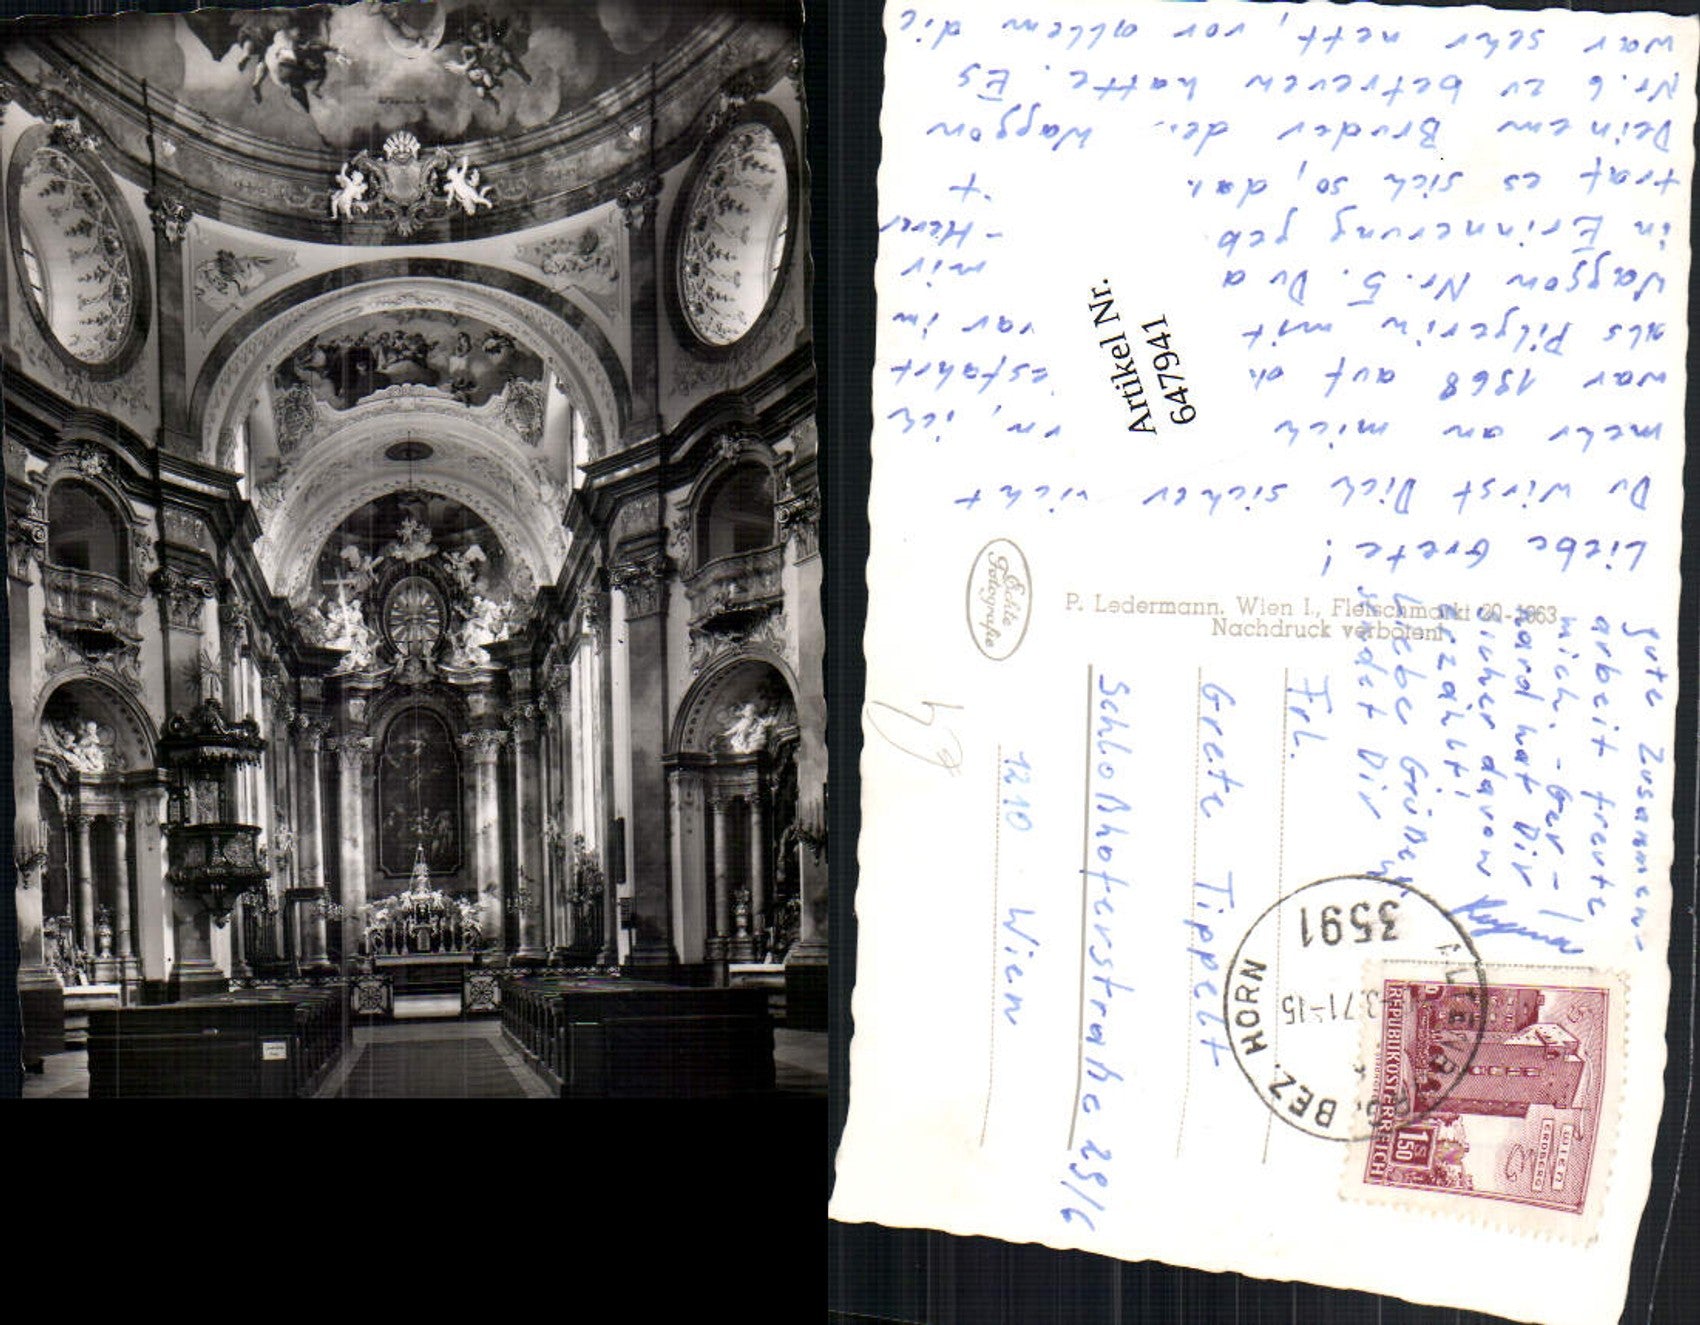 Liebe Grete!
Du wirst Dich sicher nicht
mehr an mich
war 1968 auf
als Pilgerin mit
Waggon Nr. 5. Du
in Erinnerung geb
traf es sich so, das
Deinem Bruder den Waggon
Nr. 6 zu betreuen hatte. Es
war sehr nett, vor allem die
gute Zusammen-
arbeit freute
mich. - Ger-
hard hat Dir
sicher davon
erzählt!
Liebe Grüße
sendet Dir
Artikel Nr.
647941
Echte
Fotografie
P. Ledermann, Wien I., Fleischmarkt 20-1963
Nachdruck verboten!
Frl.
Grete Tippelt
Schloßhoferstraße 29/6
1210 Wien
3591
BEZ. HORN
3.71-15
REPUBLIK ÖSTERREICH
1.50
S
WIEN
ERDBERG